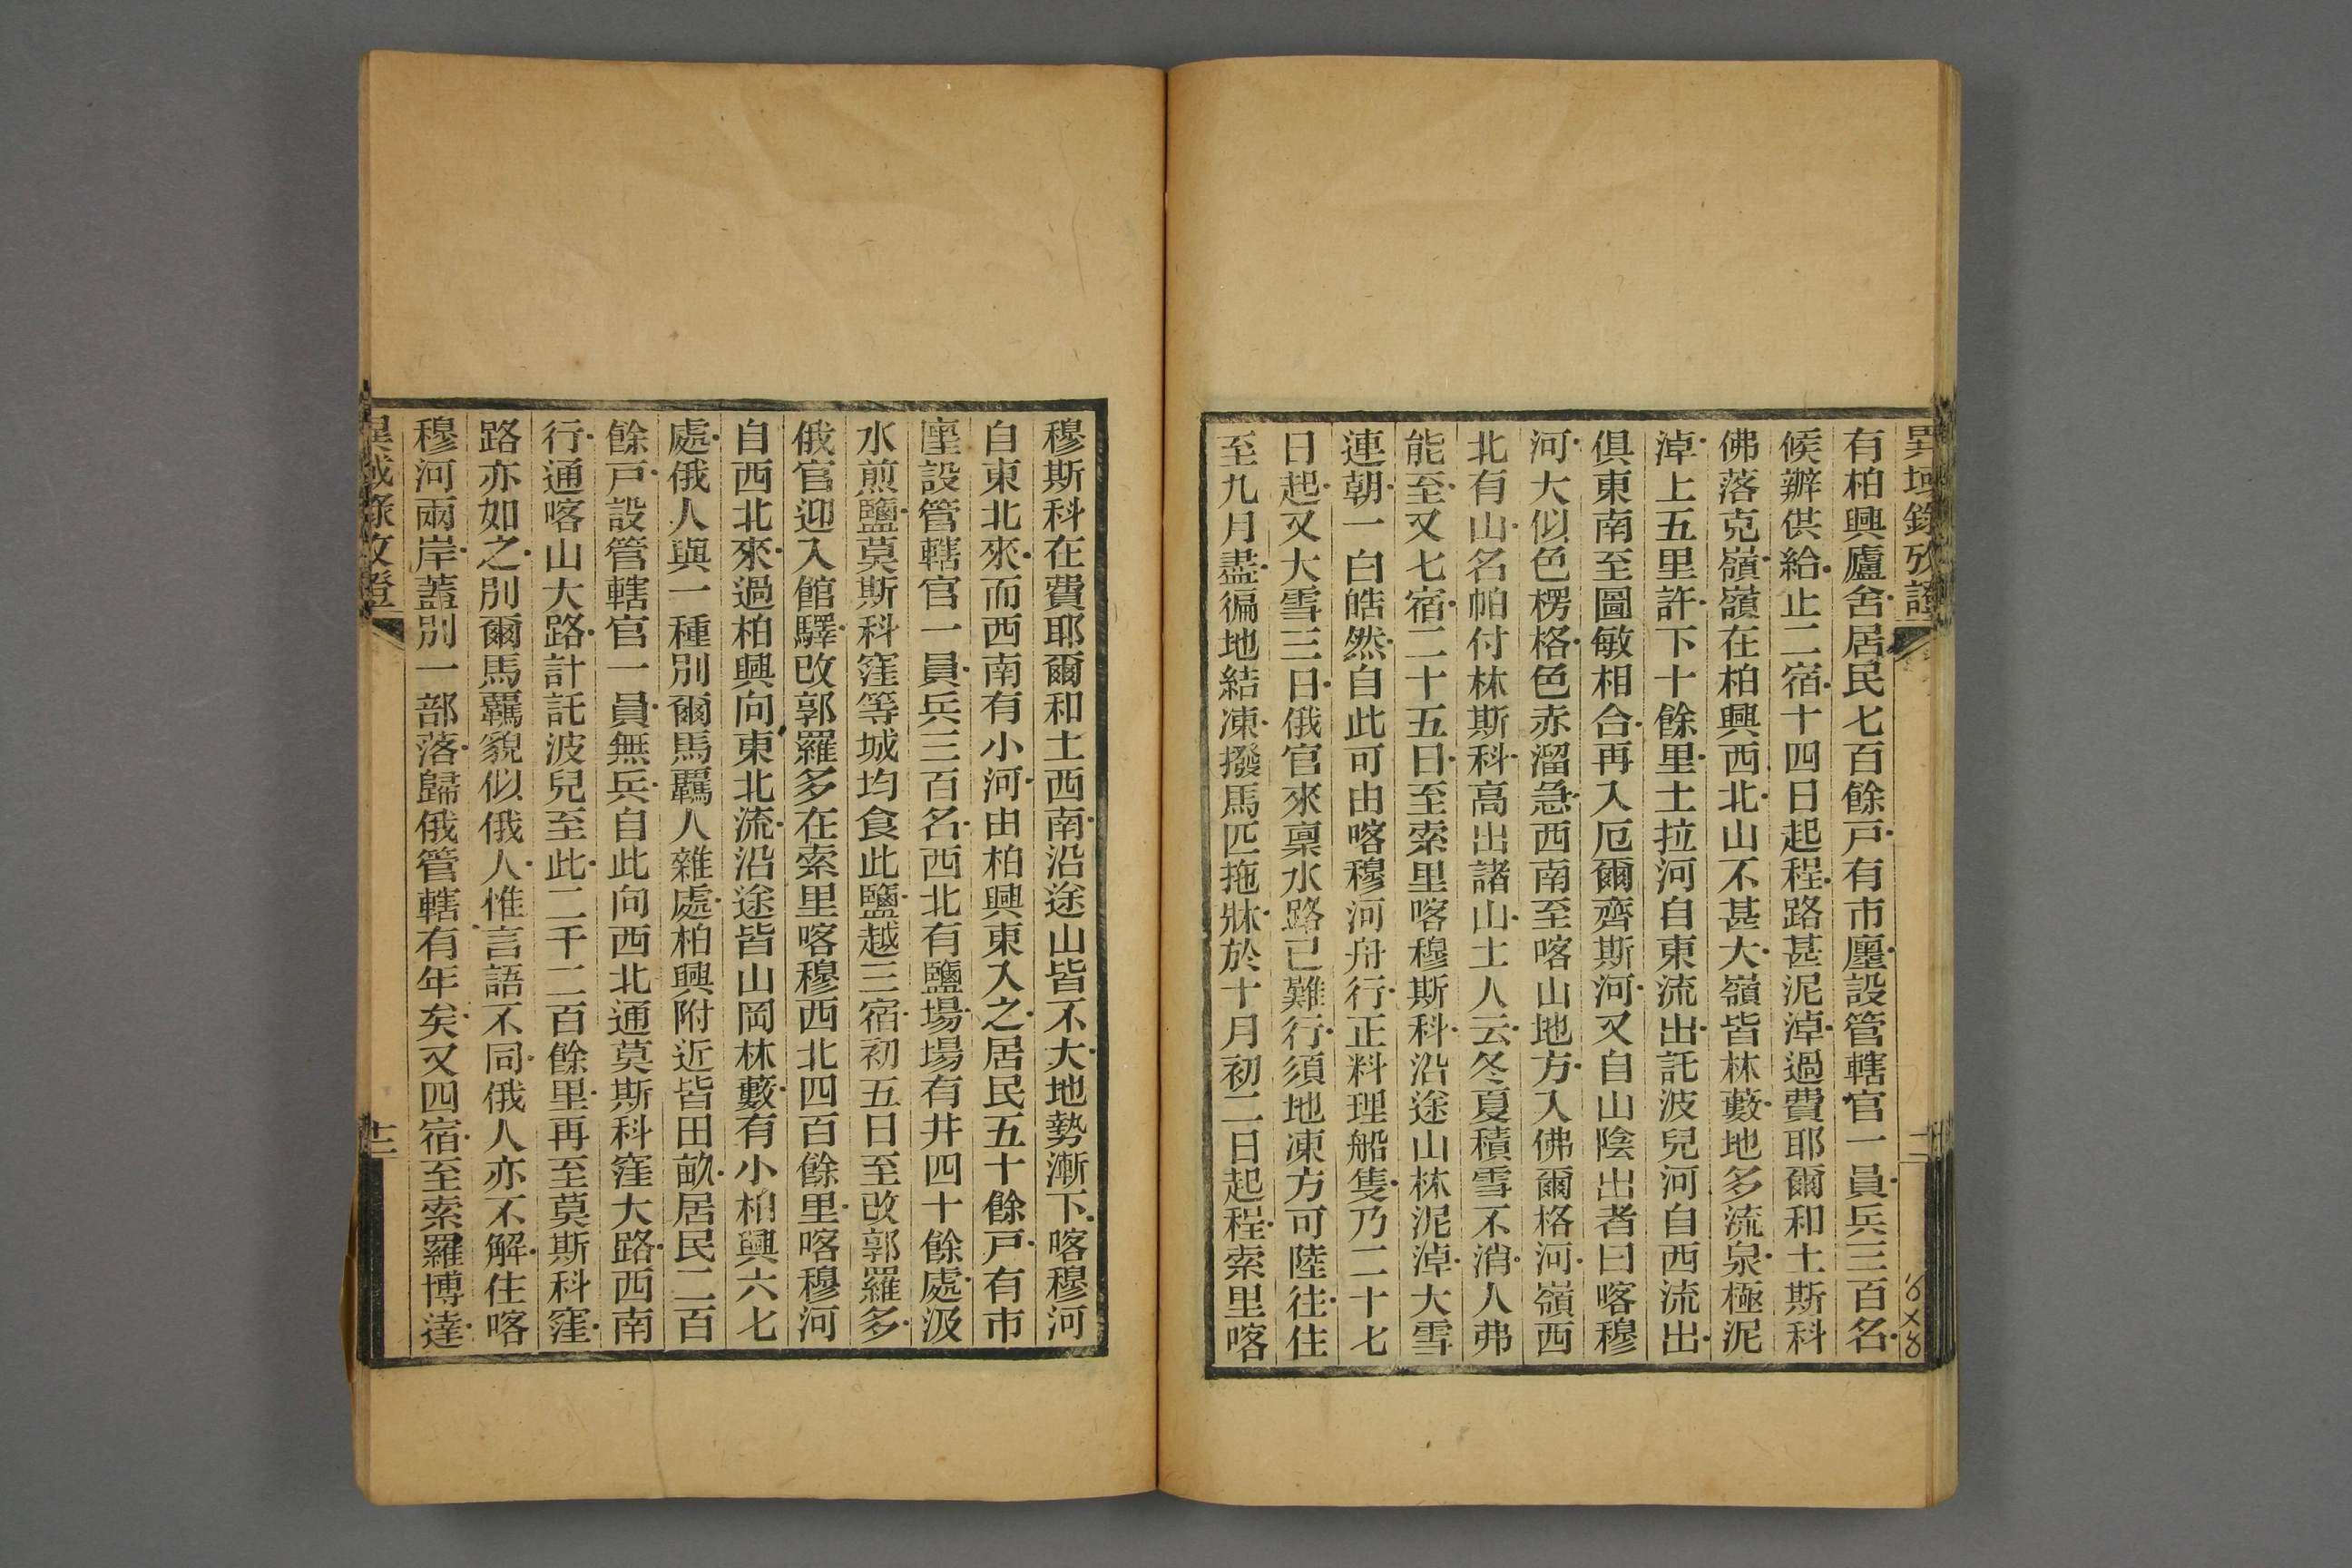 異域錄攷證
有柏興廬舍居民七百餘戸有市廛設管轄官一員兵三百名
候辦供給止二宿十四日起程路甚泥淖過費耶爾和土斯科
佛落克嶺嶺在柏興西北山不甚大嶺皆林藪地多流泉極泥
淖上五里許下十餘里土拉河自東流出託波兒河自西流出
俱東南至圖敏相合再入厄爾齊斯河又自山陰出者曰喀穆
河大似色楞格色赤溜急西南至喀山地方入佛爾格河嶺西
北有山名帕付林斯科高出諸山土人云冬夏積雪不消人弗
能至又七宿二十五日至索里喀穆斯科沿途山林泥淖大雪
連朝一白皓然自此可由喀穆河舟行正料理船隻乃二十七
日起又大雪三日俄官來稟水路已難行須地凍方可陸往住
至九月盡徧地結凍撥馬匹拖牀於十月初二日起程索里喀
穆斯科在費耶爾和土西南沿途山皆不大地勢漸下喀穆河
自東北來而西南有小河由柏興東入之居民五十餘戸有市
座設管轄官一員兵三百名西北有鹽場場有井四十餘處汲
水煎鹽莫斯科窪等城均食此鹽越三宿初五日至改郭羅多
俄官迎入館驛改郭羅多在索里喀穆西北四百餘里喀穆河
自西北來過柏興向東北流沿途皆山岡林藪有小柏興六七
處俄人與一種別爾馬羈人雜處柏興附近皆田畝居民二百
餘戸設管轄官一員無兵自此向西北通莫斯科窪大路西南
行通喀山大路計託波兒至此二千二百餘里再至莫斯科窪
路亦如之別爾馬羈貌似俄人惟言語不同俄人亦不解住喀
穆河兩岸蓋別一部落歸俄管轄有年矣又四宿至索羅博達
異域錄攷證
十二